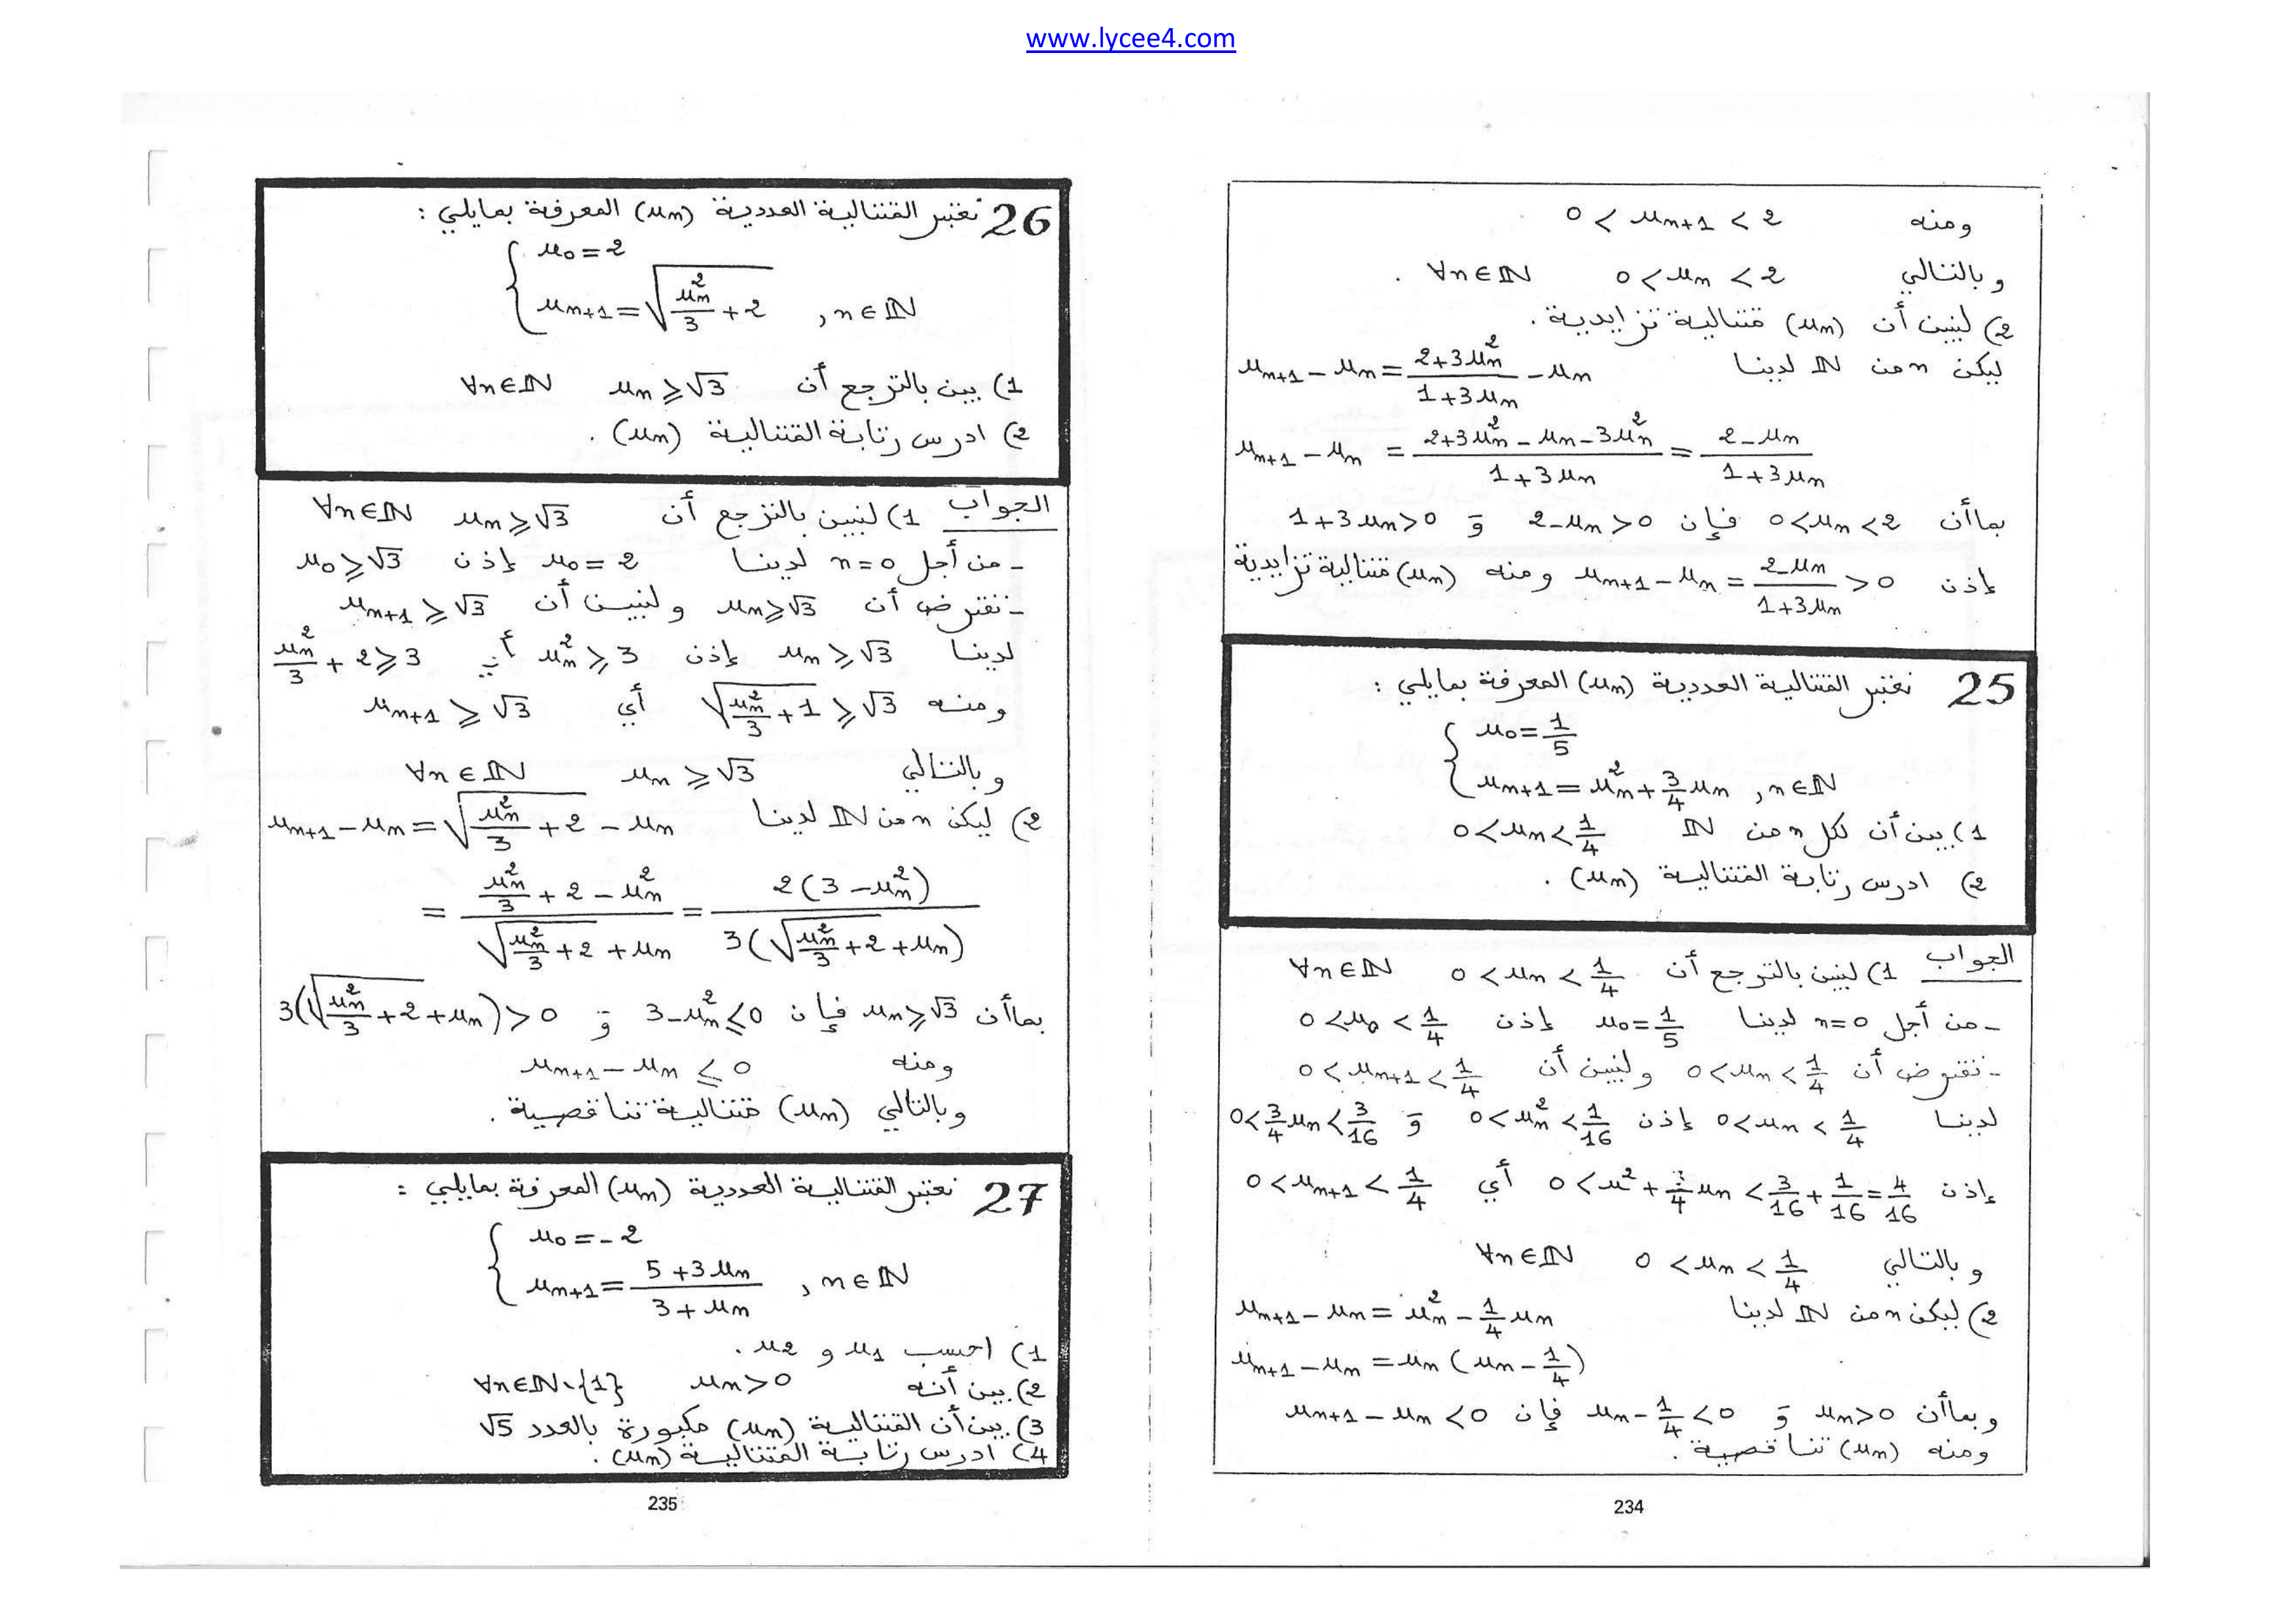 www.lycee4.com
ومنه 0 < u_{n+1} < 2
وبالتالي 0 < u_n < 2 ∀n∈ℕ .
2) لنبين أن (u_n) متتالية تزايدية .
ليكن n من ℕ لدينا u_{n+1} - u_n = \frac{2+3u_n^2}{1+3u_n} - u_n
u_{n+1} - u_n = \frac{2+3u_n^2 - u_n - 3u_n^2}{1+3u_n} = \frac{2-u_n}{1+3u_n}
بما أن 0<u_n<2 فإن 2-u_n>0 و 1+3u_n>0
إذن u_{n+1} - u_n = \frac{2-u_n}{1+3u_n} > 0 ومنه (u_n) متتالية تزايدية
25 نعتبر المتتالية العددية (u_n) المعرفة بمايلي :
u_0 = \frac{1}{5}
u_{n+1} = u_n^2 + \frac{3}{4}u_n , n∈ℕ
1) بين أن لكل n من ℕ 0<u_n<\frac{1}{4}
2) ادرس رتابة المتتالية (u_n) .
الجواب 1) لنبين بالترجع أن 0 < u_n < \frac{1}{4} ∀n∈ℕ
- من أجل n=0 لدينا u_0=\frac{1}{5} إذن 0<u_0<\frac{1}{4}
- نفترض أن 0<u_n<\frac{1}{4} ولنبين أن 0<u_{n+1}<\frac{1}{4}
لدينا 0<u_n<\frac{1}{4} إذن 0<u_n^2<\frac{1}{16} و 0<\frac{3}{4}u_n<\frac{3}{16}
إذن 0<u^2+\frac{3}{4}u_n<\frac{3}{16}+\frac{1}{16}=\frac{4}{16} أي 0<u_{n+1}<\frac{1}{4}
وبالتالي 0 < u_n < \frac{1}{4} ∀n∈ℕ
2) ليكن n من ℕ لدينا u_{n+1} - u_n = u_n^2 - \frac{1}{4}u_n
u_{n+1} - u_n = u_n ( u_n - \frac{1}{4} )
وبما أن u_n>0 و u_n-\frac{1}{4}<0 فإن u_{n+1} - u_n <0
ومنه (u_n) تناقصية .
234
26 نعتبر المتتالية العددية (u_n) المعرفة بمايلي :
u_0 = 2
u_{n+1} = \sqrt{\frac{u_n^2}{3}+2} , n∈ℕ
1) بين بالترجع أن u_n ⩾ √3 ∀n∈ℕ
2) ادرس رتابة المتتالية (u_n) .
الجواب 1) لنبين بالترجع أن u_n ⩾ √3 ∀n∈ℕ
- من أجل n=0 لدينا u_0=2 إذن u_0 ⩾ √3
- نفترض أن u_n⩾√3 ولنبين أن u_{n+1} ⩾ √3
لدينا u_n ⩾ √3 إذن u_n^2 ⩾ 3 أي \frac{u_n^2}{3} + 2 ⩾ 3
ومنه \sqrt{\frac{u_n^2}{3}+1} ⩾ √3 أي u_{n+1} ⩾ √3
وبالتالي u_n ⩾ √3 ∀n∈ℕ
2) ليكن n من ℕ لدينا u_{n+1} - u_n = \sqrt{\frac{u_n^2}{3}+2} - u_n
= \frac{\frac{u_n^2}{3}+2-u_n^2}{\sqrt{\frac{u_n^2}{3}+2}+u_n} = \frac{2(3-u_n^2)}{3(\sqrt{\frac{u_n^2}{3}+2}+u_n)}
بما أن u_n⩾√3 فإن 3-u_n^2⩽0 و 3(\sqrt{\frac{u_n^2}{3}+2}+u_n)>0
ومنه u_{n+1} - u_n ⩽ 0
وبالتالي (u_n) متتالية تناقصية .
27 نعتبر المتتالية العددية (u_n) المعرفة بمايلي :
u_0 = -2
u_{n+1} = \frac{5+3u_n}{3+u_n} , n∈ℕ
1) احسب u_1 و u_2 .
2) بين أنه u_n>0 ∀n∈ℕ\{1}
3) بين أن المتتالية (u_n) مكبورة بالعدد √5
4) ادرس رتابة المتتالية (u_n) .
235